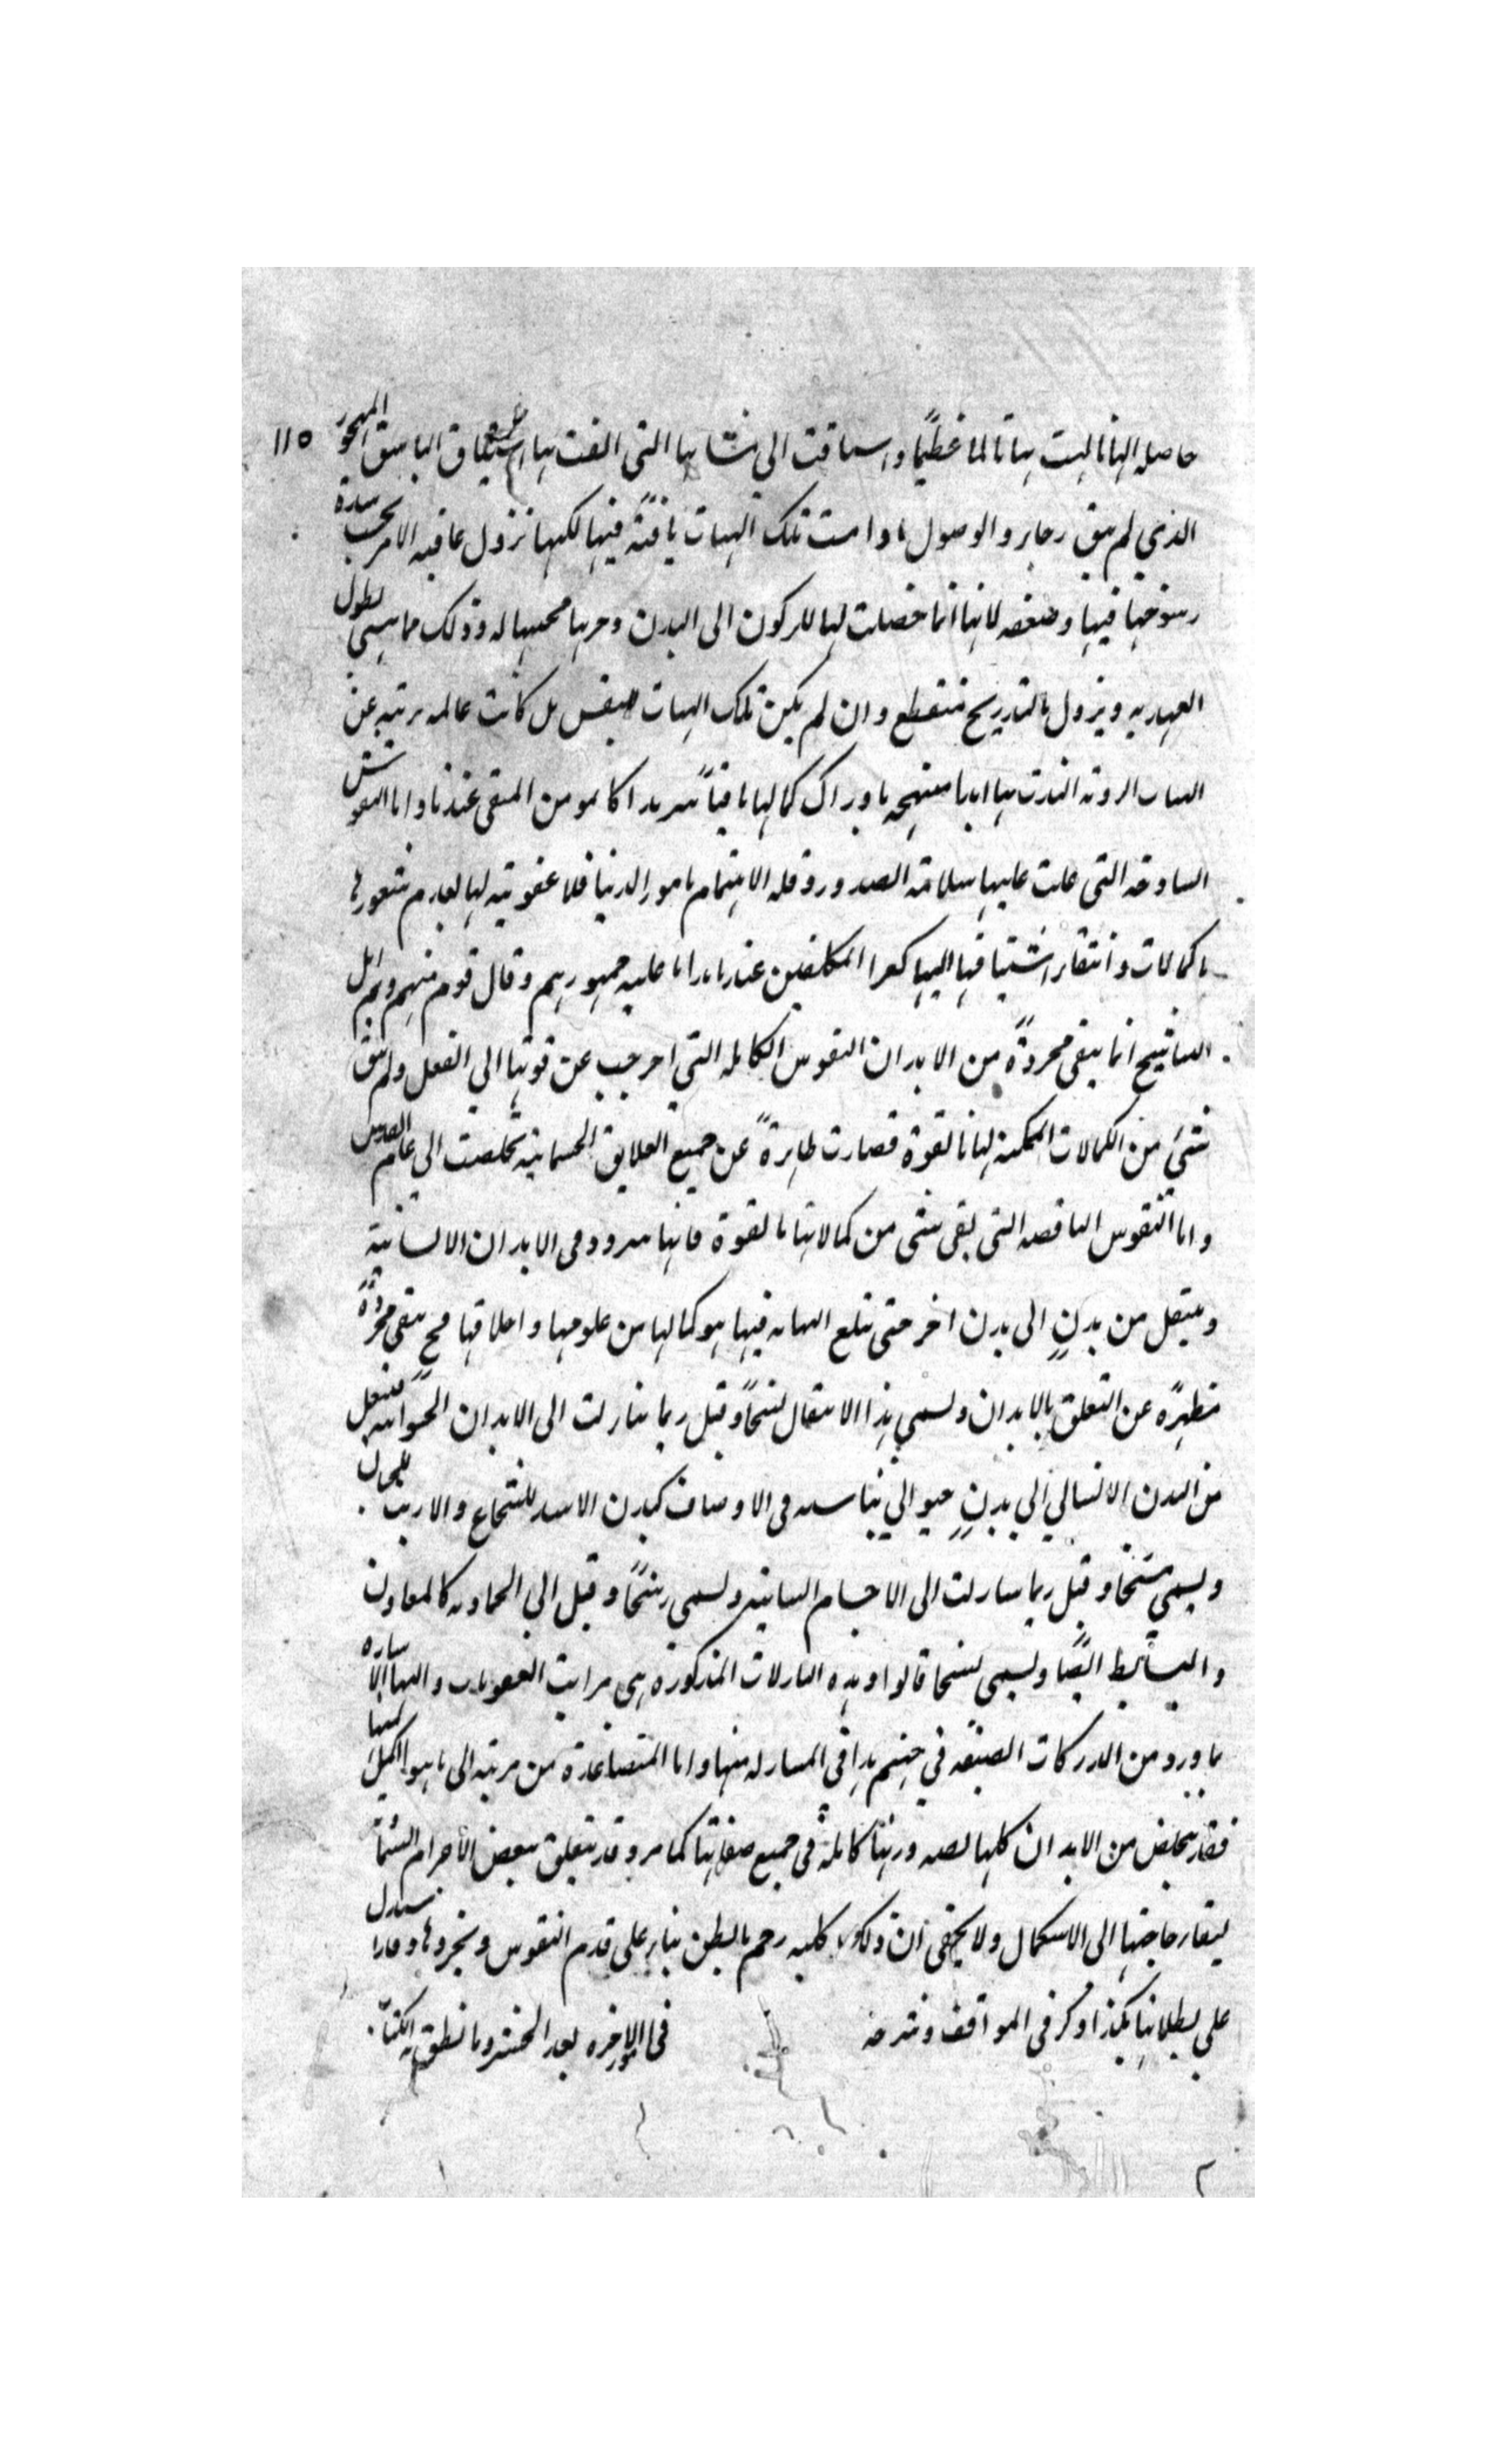 حاصله لها تالمت بها تالما عظيما واشتاقت الى مشتهياتها التى الفت بها اشتياق العاشق المهجور ١١٥
الذي لم يبق رجاء الوصول ما دامت تلك الهيات باقية فيها لكنها تزول عاقبة الامر بحسب شدة
رسوخها فيها وضعفه لانها انما حصلت لها للركون الى البدن وجرها محبتها له وذلك مما ينسى بطول
العهد به ويزول بالتدريج فتنقطع وان لم يكن تلك الهيات للنفس بل كانت عالمة برئية عن
الهيات الردية التذت بها ابدا مبتهجة بادراك كمالها باقيا سرمدا كالمومن المتقى عندنا واما النفوس
الساذجة التى غلبت عليها سلامة الصدور وقلة الاهتمام بامور الدنيا فلا عقوبة لها لعدم شعورها
بالكمالات وانتفاء اشتياقها اليها كغير المكلفين عندنا هذا ما عليه جمهورهم وقال قوم منهم وهم اهل
التناسخ انما يبقى مجردة من الابدان النفوس الكاملة التي اخرجت عن قوتها الى الفعل ولم يبق
شيء من الكمالات الممكنة لها بالقوة فصارت طاهرة عن جميع العلايق الجسمانية وتخلصت الى عالم القدس
واما النفوس الناقصة التى بقى شيء من كمالاتها بالقوة فانها تتردد فى الابدان الانسانية
وينتقل من بدن الى بدن اخر حتى تبلغ النهاية فيما هو كمالها من علومها واخلاقها فح تبقى مجردة
مطهرة عن التعلق بالابدان ويسمى هذا الانتقال نسخا وقيل ربما تنازلت الى الابدان الحيوانية فينتقل
من البدن الانساني الى بدن حيواني يناسبه فى الاوصاف كبدن الاسد للشجاع والارنب للجبان
ويسمى مسخا وقيل ربما تنازلت الى الاجسام النباتية ويسمى رسخا وقيل الى الجمادية كالمعادن
والبسايط ايضا ويسمى فسخا قالوا وهذه التنازلات المذكورة هى مراتب العقوبات واليها الاشارة
بما ورد من الدركات الضيقة في جهنم هذا فى المتنازلة منها واما المتصاعدة من مرتبة الى ما هو اكمل منها
فقد يتخلص من الابدان كلها لصيرورتها كاملة فى جميع صفاتها كما مر وقد يتعلق ببعض الأجرام السماوية
لبقاء حاجتها الى الاستكمال ولا يخفى ان ذلك كله رجم بالظن بناء على قدم النفوس وتجردها وقد استدل
على بطلانها هكذا ذكر فى المواقف وشرحه فى امور الاخرة بعد الحشر وما نطق به الكتاب